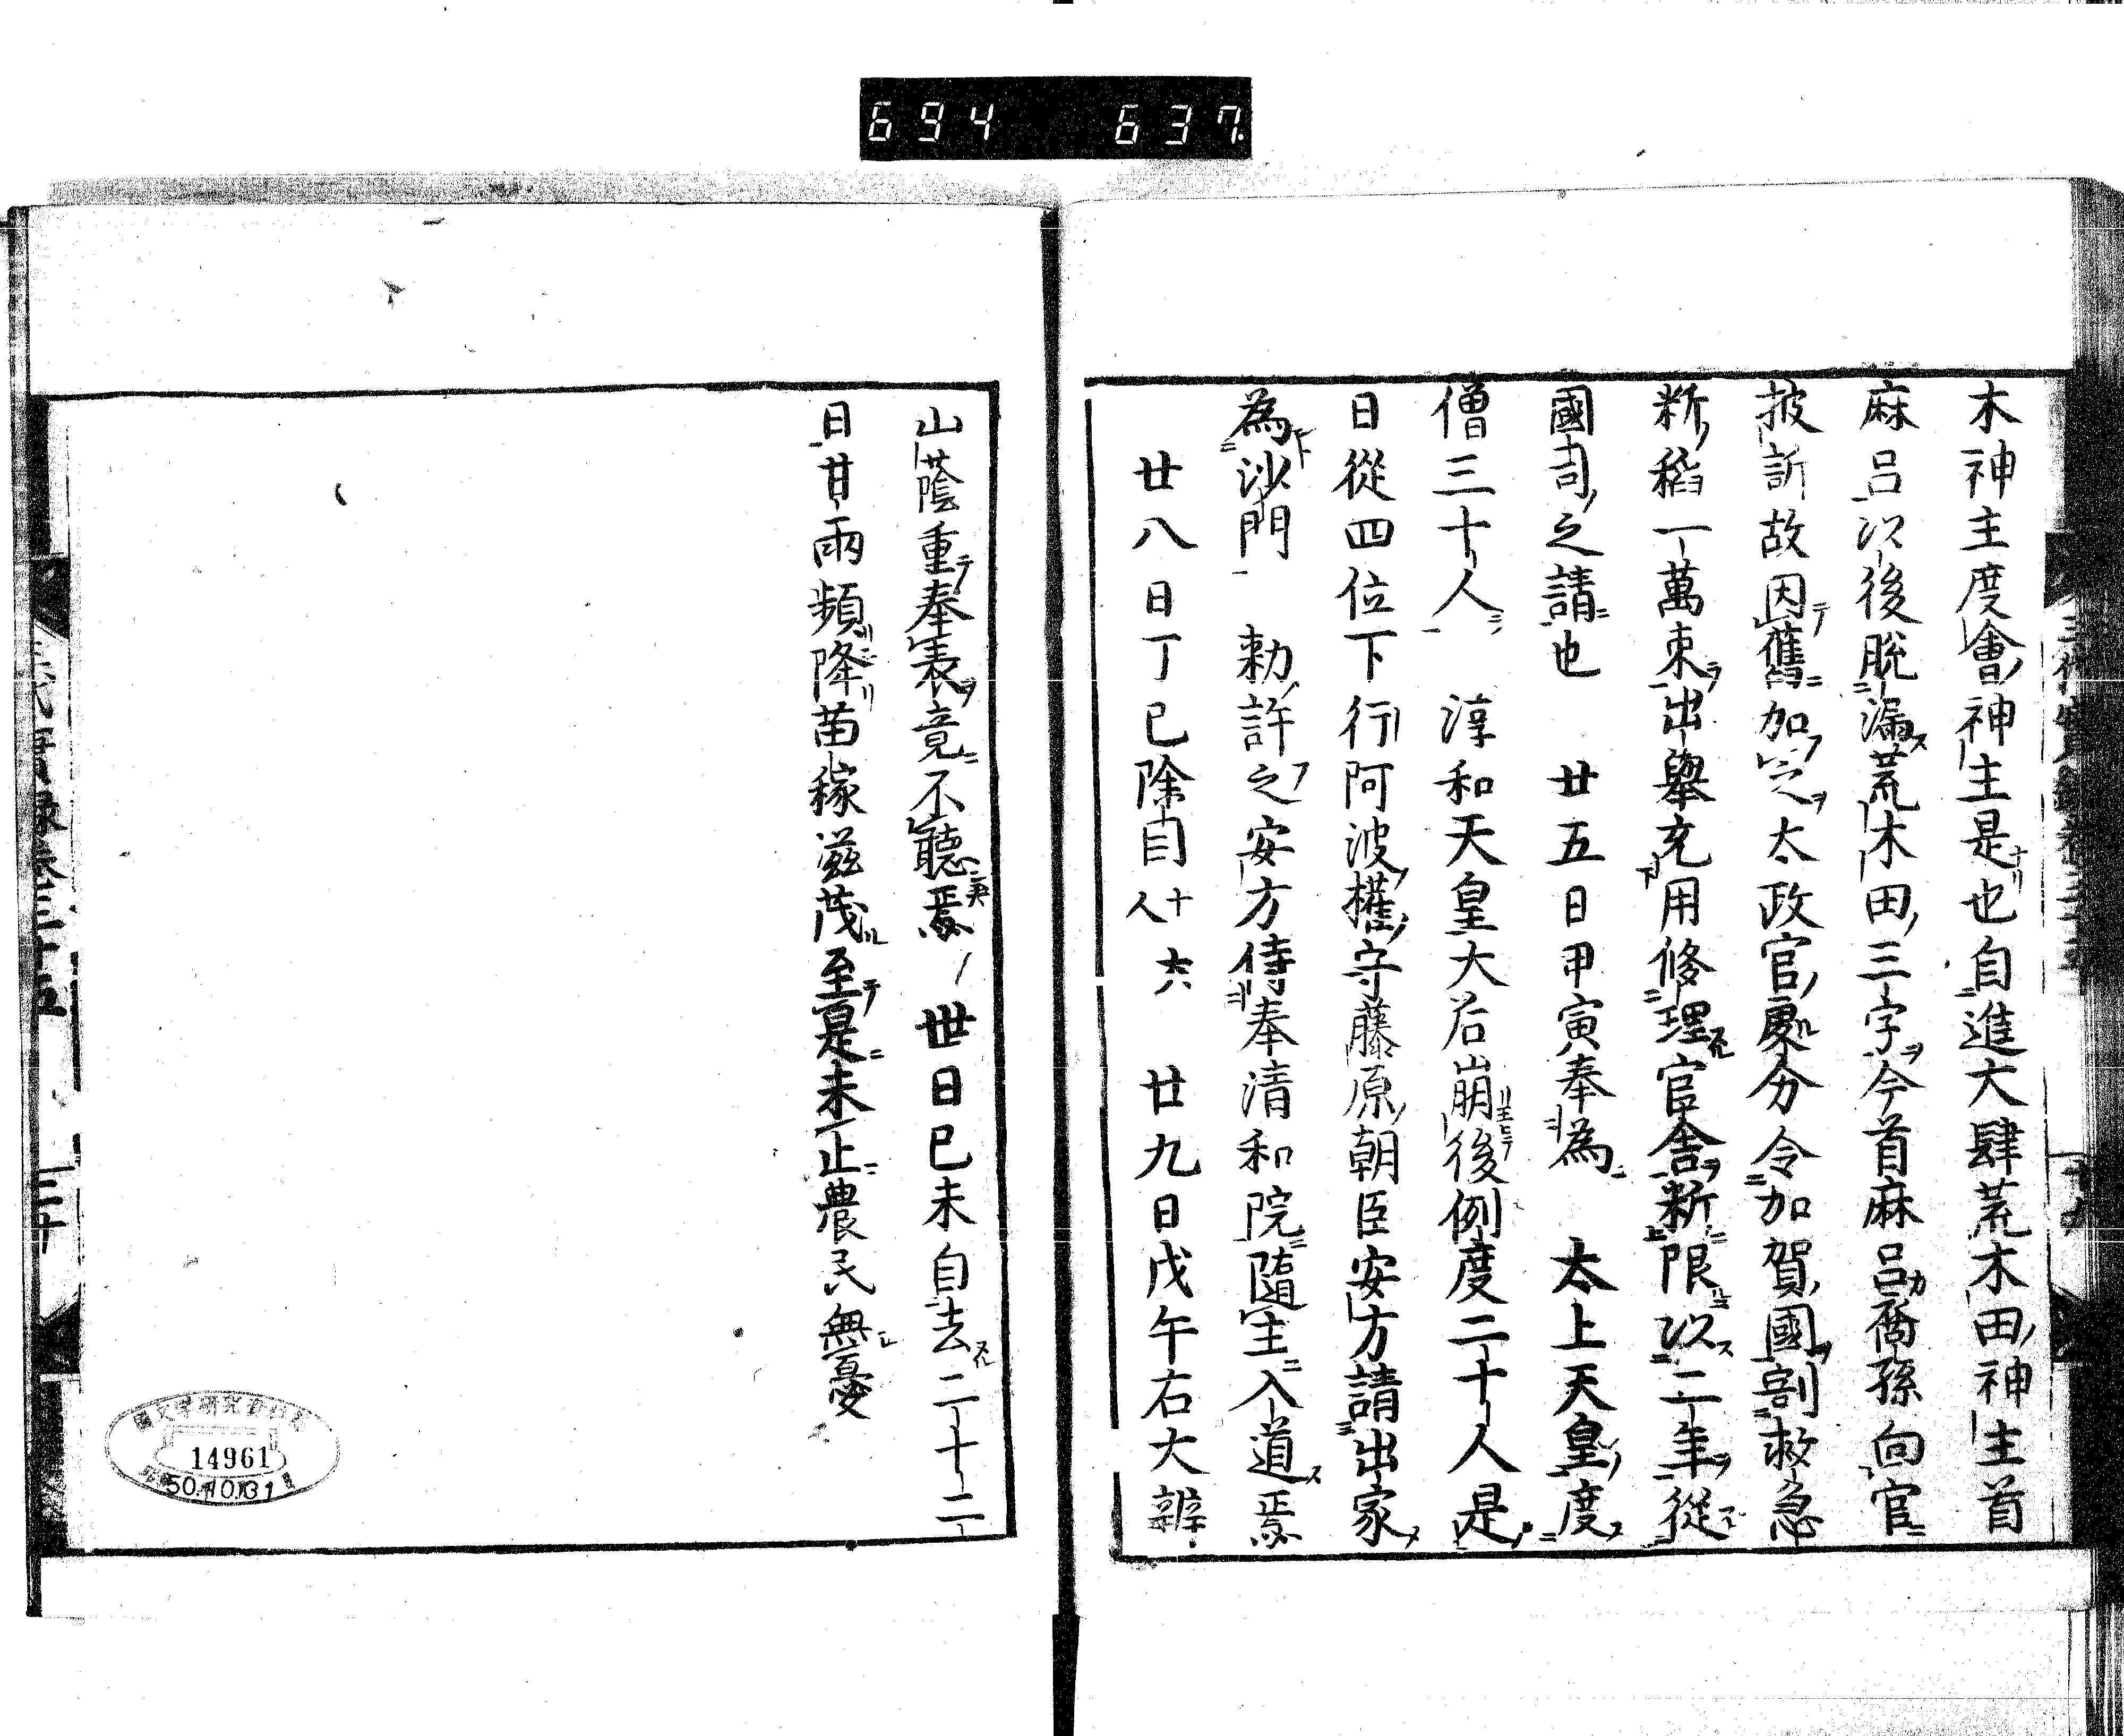 694 637
木神主度會神主是也自進大肆荒木田神主首
麻呂以後脱漏荒木田三字今首麻呂裔孫向官
披訴故因舊加之太政官處分令加賀國割救急
料稻一萬束出擧充用修理官舍料限以二年從
國司之請也 廿五日甲寅奉為 太上天皇度
僧三十人 淳和天皇大后崩後例度二十人是
日從四位下行阿波權守藤原朝臣安方請出家
為沙門 勅許之安方侍奉清和院隨主入道焉
廿八日丁巳除目十六人 廿九日戊午右大辨
山蔭重奉表竟不聽焉 丗日己未自去二十二
日甘雨頻降苗稼滋茂至是未止農民無憂
三代實錄卷三十五 三十
14961
50.10.31